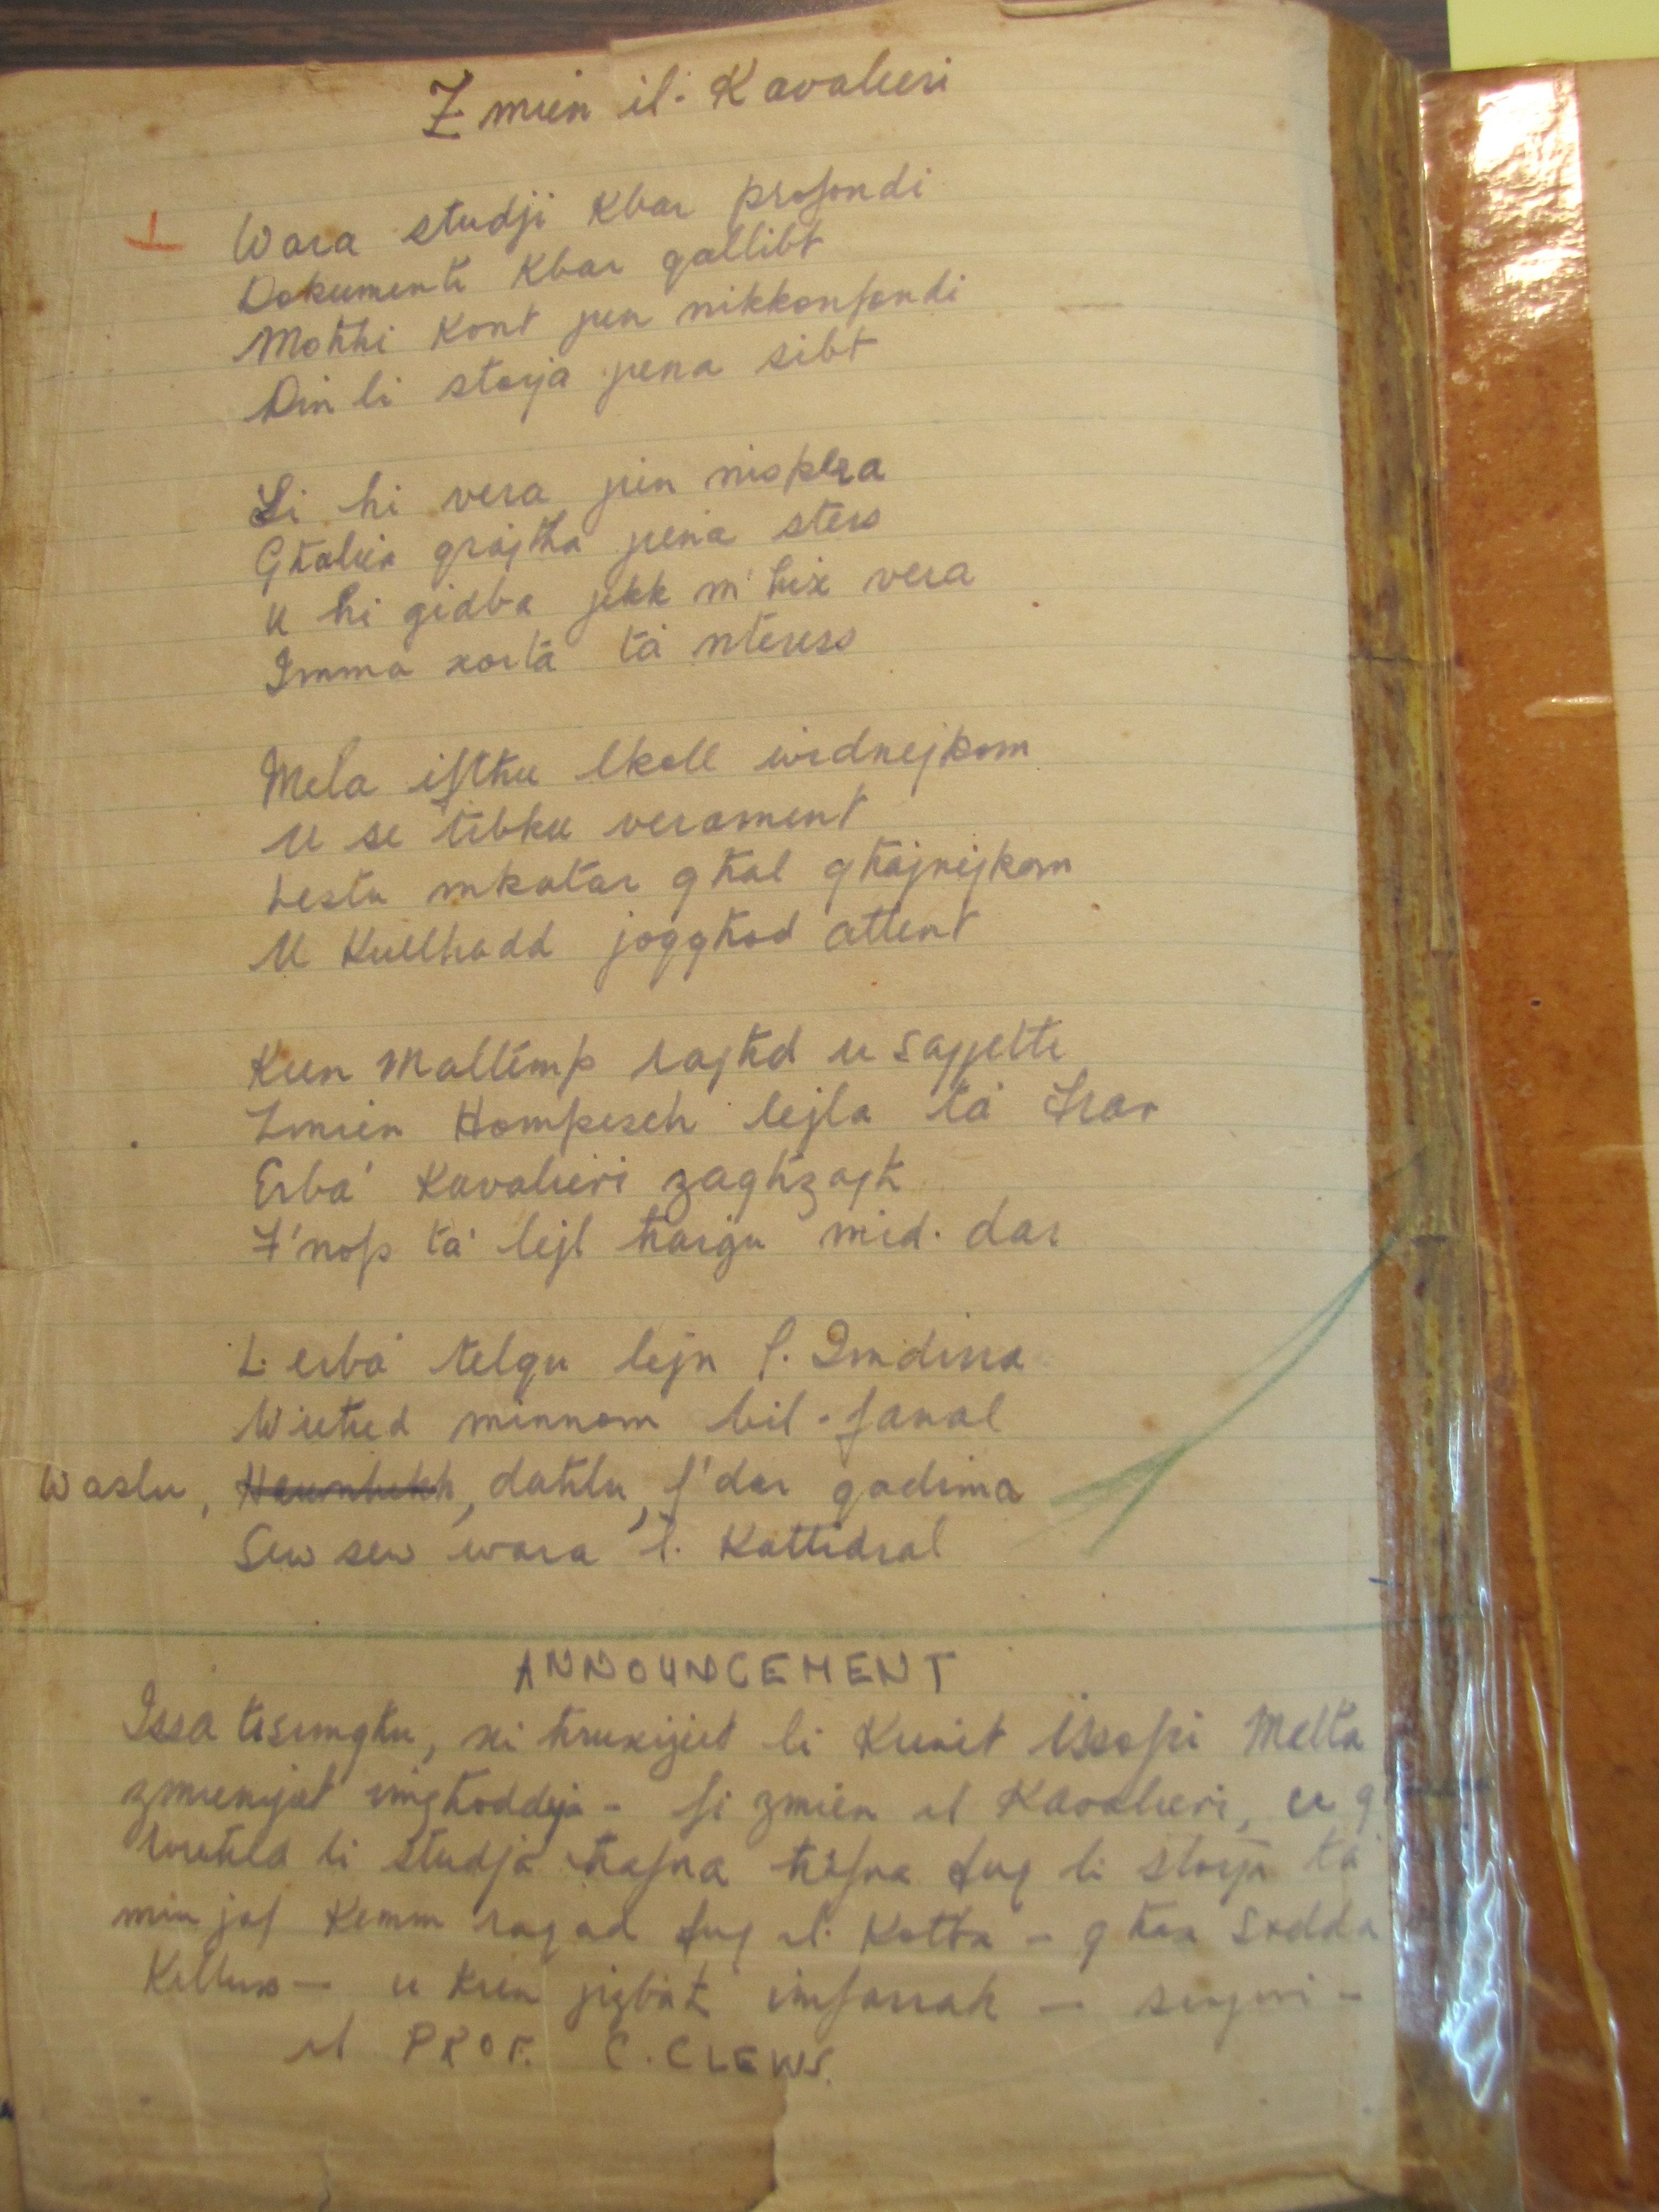 Żmien il-Kavalieri
Wara studji Kbar profondi
Dokumenti Kbar qallibt
Moħħi Kont jien nikkonfondi
Din li storja jiena sibt
Li hi vera jien nispera
Għaliex qrajtha jiena stess
U hi gidba jekk m'hix vera
Imma xorta ta nteress
Mela iftħu lkoll widnejkom
U se tibku verament
Lestu mkatar għal għajnejkom
U Kullħadd joqgħod attent
Kien Mallemp ragħd u sajjetti
Żmien Hompesch lejla ta Frar
Erba' Kavalieri żagħżagħ
F'nofs ta' lejl ħarġu mid-dar
L-erba' telqu lejn l-Imdina
Wieħed minnom bil-fanal
Waslu, daħlu, f'dar qadima
Sew sew wara l-Kattidral
ANNOUNCEMENT
Issa tisimgħu, xi ħruxijiet li Kienet issofri Malta
żmenijiet imgħoddija - fi żmien il Kavalieri, u
wieħed li studja ħafna ħafna fuq li storja ta
min jaf Kemm raqad fuq il-Kotba - għax Sodda
Kellux - u kien jiżbaħ imfarrak - sinjuri -
il PROF. C. CLEWS.